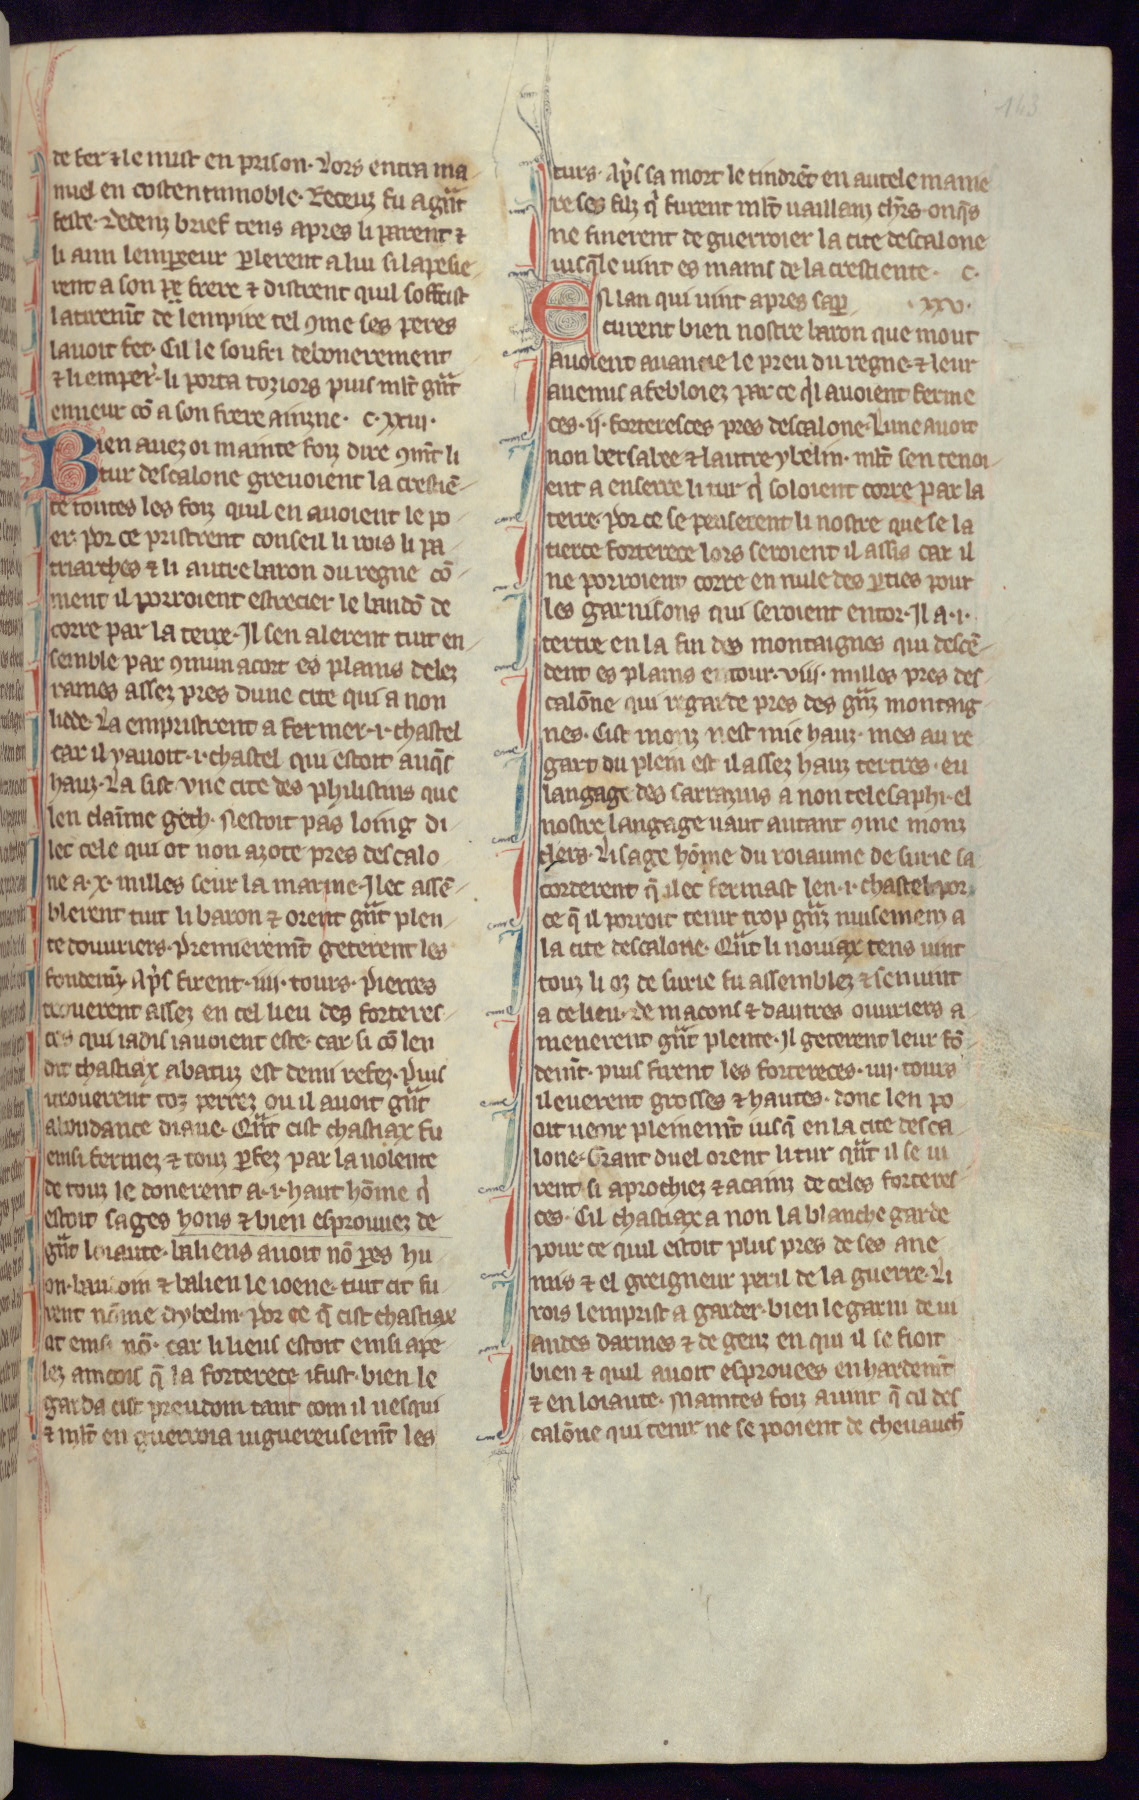 143
de fer ⁊ le mist en prison. Lors entra ma
nuel en costentinnoble. Receuz fu a gñt
feste. Dedenz brief tens apres li parent ⁊
li ami lempereur plerent a lui si lapesie
rent a son pe frere ⁊ distrent quil soffrist
latirem̃t de lempire tel ꝯme ses peres
lavoit fet. Cil le soufri debonerement
⁊ li emper̃. li porta tozjors puis ml̃t gñt
enneur cõ a son frere ainzne. c. xxiii.
Bien avez oi mainte foiz dire ꝯm̃t li
tur descalone grevoient la crestiẽ
te toutes les foiz quil en avoient le po
er. por ce pristrent conseil li rois li pa
triarches ⁊ li autre baron du regne cõ
ment il porroient estrecier le bandõ de
corre par la terre. Il sen alerent tuit en
semble par ꝯmun acort es plains delez
rames assez pres dune cite qui a non
lidde. La empristrent a fermer .i. chastel
car il y avoit .i. chastel qui estoit auq̃s
hauz. La sist une cite des philistins que
len claime geth. Nestoit pas loing di
lec cele qui ot non azote pres descalo
ne a .x. milles seur la marine. Ilec assẽ
blerent tuit li baron ⁊ orent gñt plen
te douvriers. Premierem̃t geterent les
fondem̃z. Ap̃s firent .iiii. tours. Pierres
trouverent assez en cel lieu des forteres
ces qui iadis i avoient este. car si cõ len
dit chastiax abatuz est demi refez. Puis
i trouverent toz perrez ou il avoit gñt
abondance diaue. Qñt cist chastiax fu
einsi fermez ⁊ touz p̃fez par la volente
de touz le donerent a .i. haut hõme q̃
estoit sages hons ⁊ bien esprouvez de
gñt loiaute. baliens avoit nõ peres hu
on. baudoin ⁊ balien le ioene. tuit cit fu
rent nõme dybelin. por ce q̃ cist chastiax
ot einsi nõ. car li lieus estoit einsi ape
lez aincois q̃ la forterece i fust. bien le
garda cist preudom tant com il vesqui
⁊ ml̃t en guerroia viguereusem̃t les
turs. Ap̃s sa mort le tindrẽt en autele manie
re ses filz q̃ furent ml̃t vaillanz ch̃rs. onq̃s
ne finerent de guerroier la cite descalone
iusq̃le vint es mains de la crestiente. c.
En lan qui vint apres sap̃ .xxv.
curent bien nostre baron que mout
avoient avancie le preu du regne. ⁊ leur
anemis afebloiez par ce q̃l avoient ferme
ces .ii. forteresces pres descalone. Lune avoit
non bersabee ⁊ lautre ybelin. ml̃t sen tenoi
ent a enserre li tur q̃ soloient corre par la
terre. Por ce se penserent li nostre que se la
tierce forterece lors seroient il assis car il
ne porroient corre en nule des p̃ties pour
les garnisons qui seroient entor. Il a .i.
tertre en la fin des montaignes qui descẽ
dent es plains entour .viii. milles pres des
calõne qui regarde pres des gñz montaig
nes. Cist monz nest mie hauz. mes au re
gart du plein est il assez hauz tertres. eu
langage des sarrazins a non telesaphi. el
nostre langage vaut autant ꝯme monz
clers. Li sage hõme du roiaume de surie sa
corderent q̃ ilec fermast len .i. chastel por
ce q̃ il porroit tenir trop gñz nuisemenz a
la cite descalone. Qñt li noviax tens vint
touz li oz de surie fu assemblez ⁊ sen vint
a ce lieu. de macons ⁊ dautres ouvriers a
menerent gñt plente. Il geterent leur fõ
dem̃t. puis firent les fortereces .iiii. tours
i leverent grosses ⁊ hautes. donc len po
oit veoir pleinem̃t iusq̃ en la cite desca
lone. Grant duel orent li tur qñt il se vi
rent si aprochiez ⁊ acainz de celes forteres
ces. Cil chastiax a non la blanche garde
pour ce quil estoit plus pres de ses ane
mis ⁊ el greigneur peril de la guerre. Li
rois lemprist a garder. bien le garni de vi
andes darmes ⁊ de genz en qui il se fioit
bien ⁊ quil avoit esprouees en hardem̃t
⁊ en loiaute. Maintes foiz avint q̃ cil des
calõne qui tenir ne se pooient de chevauch̃